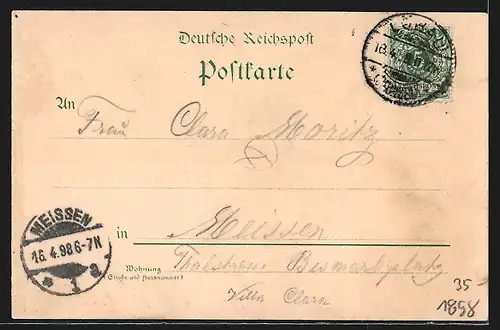 Deutsche Reichspost
Postkarte
LÖBAU
16.4.
An
Frau Clara Moritz
MEISSEN
16.4.98 6-7N
* 1 a
in Meissen
Wohnung
(Straße und Hausnummer)
Thalstrasse Bismarkplatz
Villa Clara
35
1898